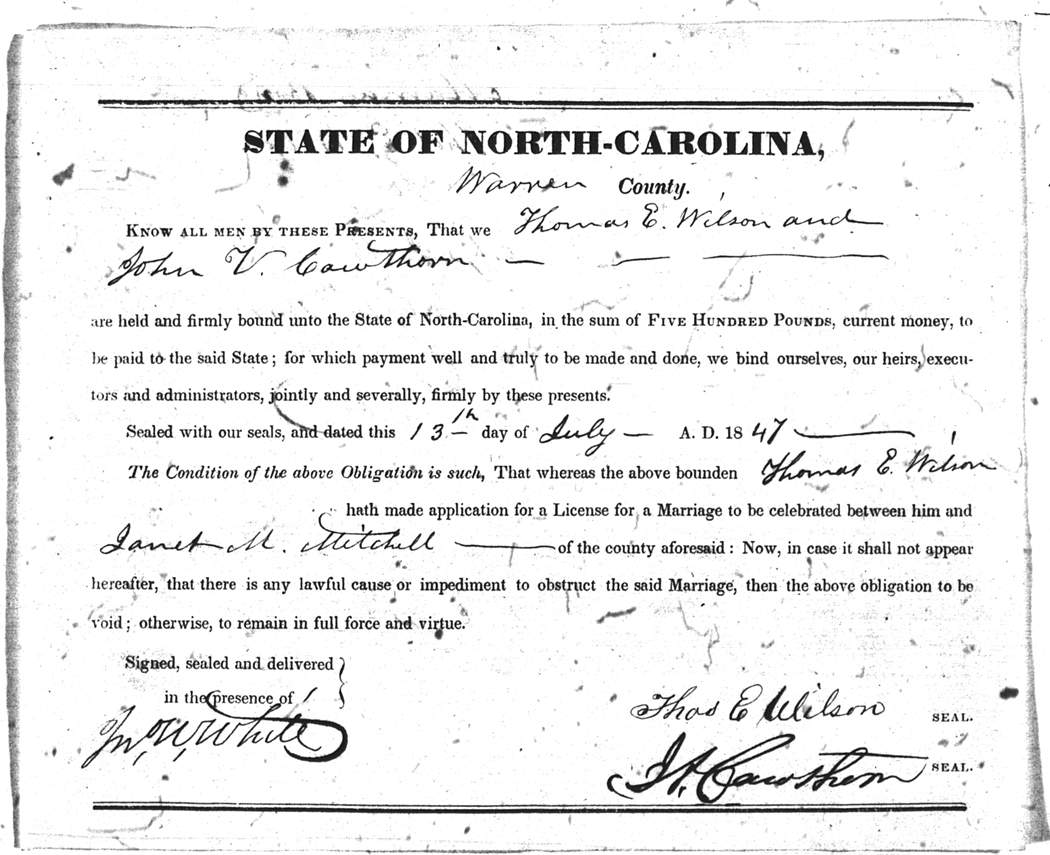 STATE OF NORTH-CAROLINA,
Warren County.
KNOW ALL MEN BY THESE PRESENTS, That we Thomas E. Wilson and
John V. Cawthorn
are held and firmly bound unto the State of North-Carolina, in the sum of FIVE HUNDRED POUNDS, current money, to
be paid to the said State; for which payment well and truly to be made and done, we bind ourselves, our heirs, execu-
tors and administrators, jointly and severally, firmly by these presents.
Sealed with our seals, and dated this 13th day of July A. D. 1847
The Condition of the above Obligation is such, That whereas the above bounden Thomas E. Wilson
hath made application for a License for a Marriage to be celebrated between him and
Janet M. Mitchell of the county aforesaid: Now, in case it shall not appear
hereafter, that there is any lawful cause or impediment to obstruct the said Marriage, then the above obligation to be
void; otherwise, to remain in full force and virtue.
Signed, sealed and delivered
in the presence of
Jno. W. White
Thos E Wilson SEAL.
Cawthorn SEAL.